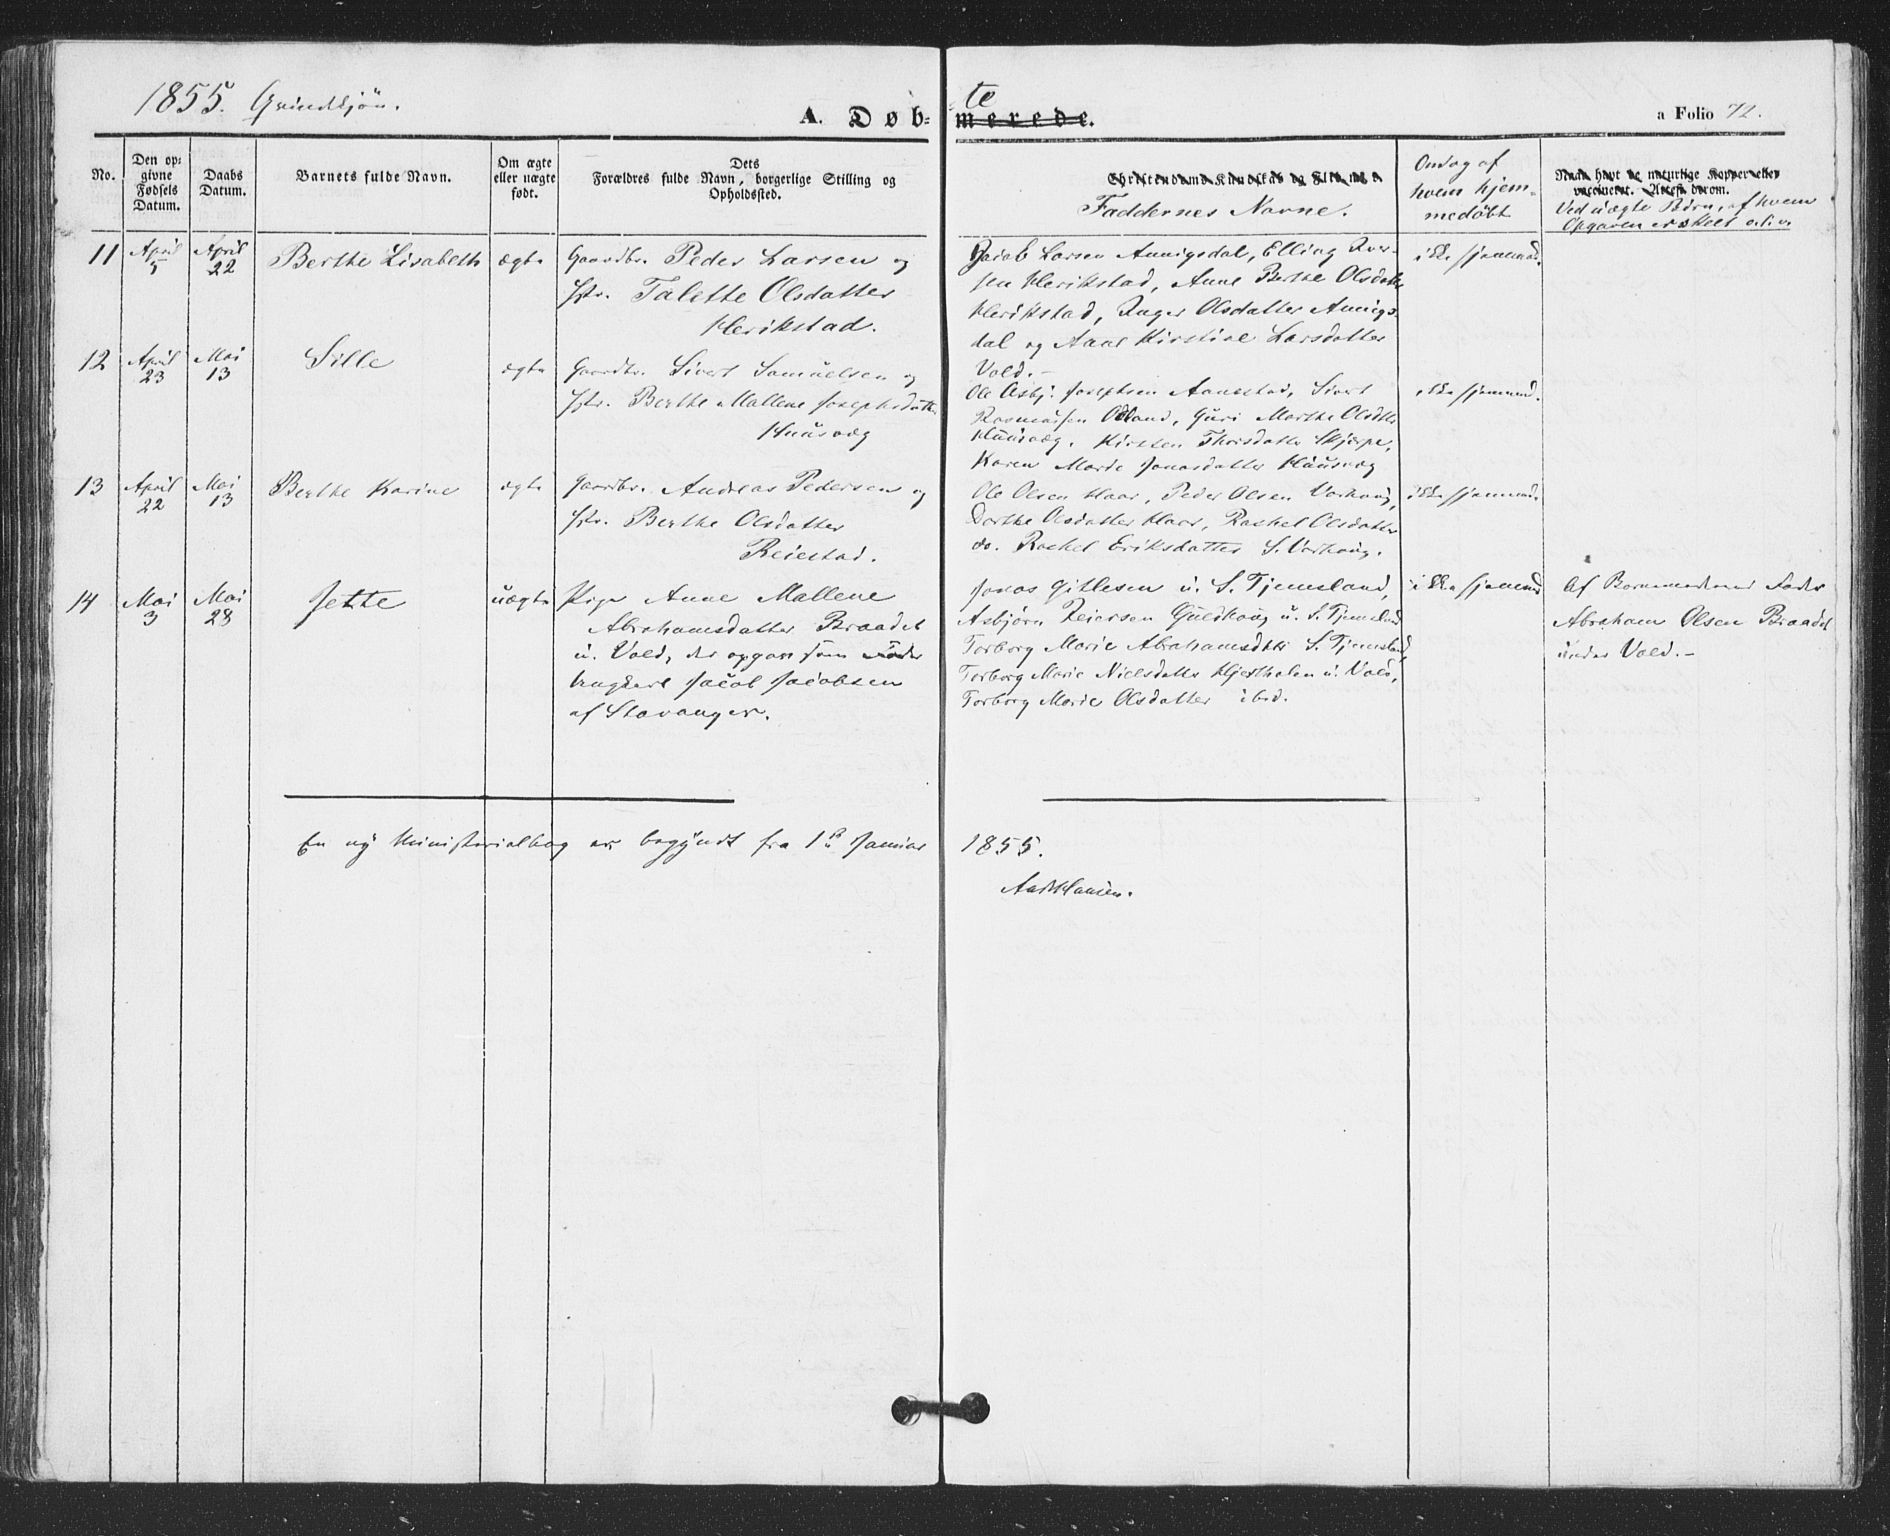 1855. Grindkjön.
A. Døb=
te
merede.
a Folio 72.
No.
Den op= givne Fødsels Datum.
Daabs Datum.
Barnets fulde Navn.
Om ægte eller uægte født.
Dets
Forældres fulde Navn, borgerlige Stilling og
Opholdssted.
Christendoms-Kundskab og Flid m. v.
Faddernes Navne.
Ombag af
hvem hjem=
medöbt
Naar havt de naturlige Kopper eller
vaccineret. Attest derom.
Ved uægte Börn, af hvem
Opgaven er skeet o. l. v.
11 April 5 April 22 Berthe Lisabeth ægte Gaardbr. Peder Larsen og
Hstr. Talette Olsdatter
Herikstad.
Jacob Larsen Aunigsdal, Elling Iver-
sen Herikstad, Anne Berthe Olsdatter
Herikstad, Inger Olsdatter Aunigs-
dal og Aane Kirstine Larsdatter
Vold.-
ikke hjemmed.
12 April 23 Mai 13 Sille ægte Gaardbr. Sivert Samuelsen og
Hstr. Berthe Mallene Josephsdatt.
Huusvæg
Ole Asbj: Josephsen Aanestad, Sivert
Rasmussen Odland, Guri Marthe Olsdtr
Huusvæg, Kirsten Thorsdattr Skjerpe,
Karen Marie Jonasdatter Huusvæg
ikke hjemmed.
13 April 22 Mai 13 Berthe Karine ægte Gaardbr. Andreas Pedersen og
Hstr. Berthe Olsdatter
Reiestad.
Ole Olsen Haar, Peder Olsen Varhoug,
Dorthe Olsdatter Haar, Rachel Olsdatter
do. Rachel Eriksdatter S. Varhoug.
ikke hjemmed.
14 Mai 3 Mai 28 Jette uægte Pige Anne Mallene
Abrahamsdatter Braadet
u. Vold, der opgav som Fader
Ungkarl Jacob Jacobsen
af Stavanger.
Jonas Gitlesen u. S. Tjemsland,
Asbjörn Reiersen Guldhoug u. S. Tjemsland
Torborg Marie Abrahamsdtr S. Tjemsland,
Torborg Marie Nielsdattr Hjerthalen u. Vold,
Torborg Marie Olsdatter ibid.
ikke hjemmed
Af Barnemoderens Fader
Abraham Olsen Braadet
under Vold.-
En ny Ministerialbog er begyndt fra 1ste Januar 1855.